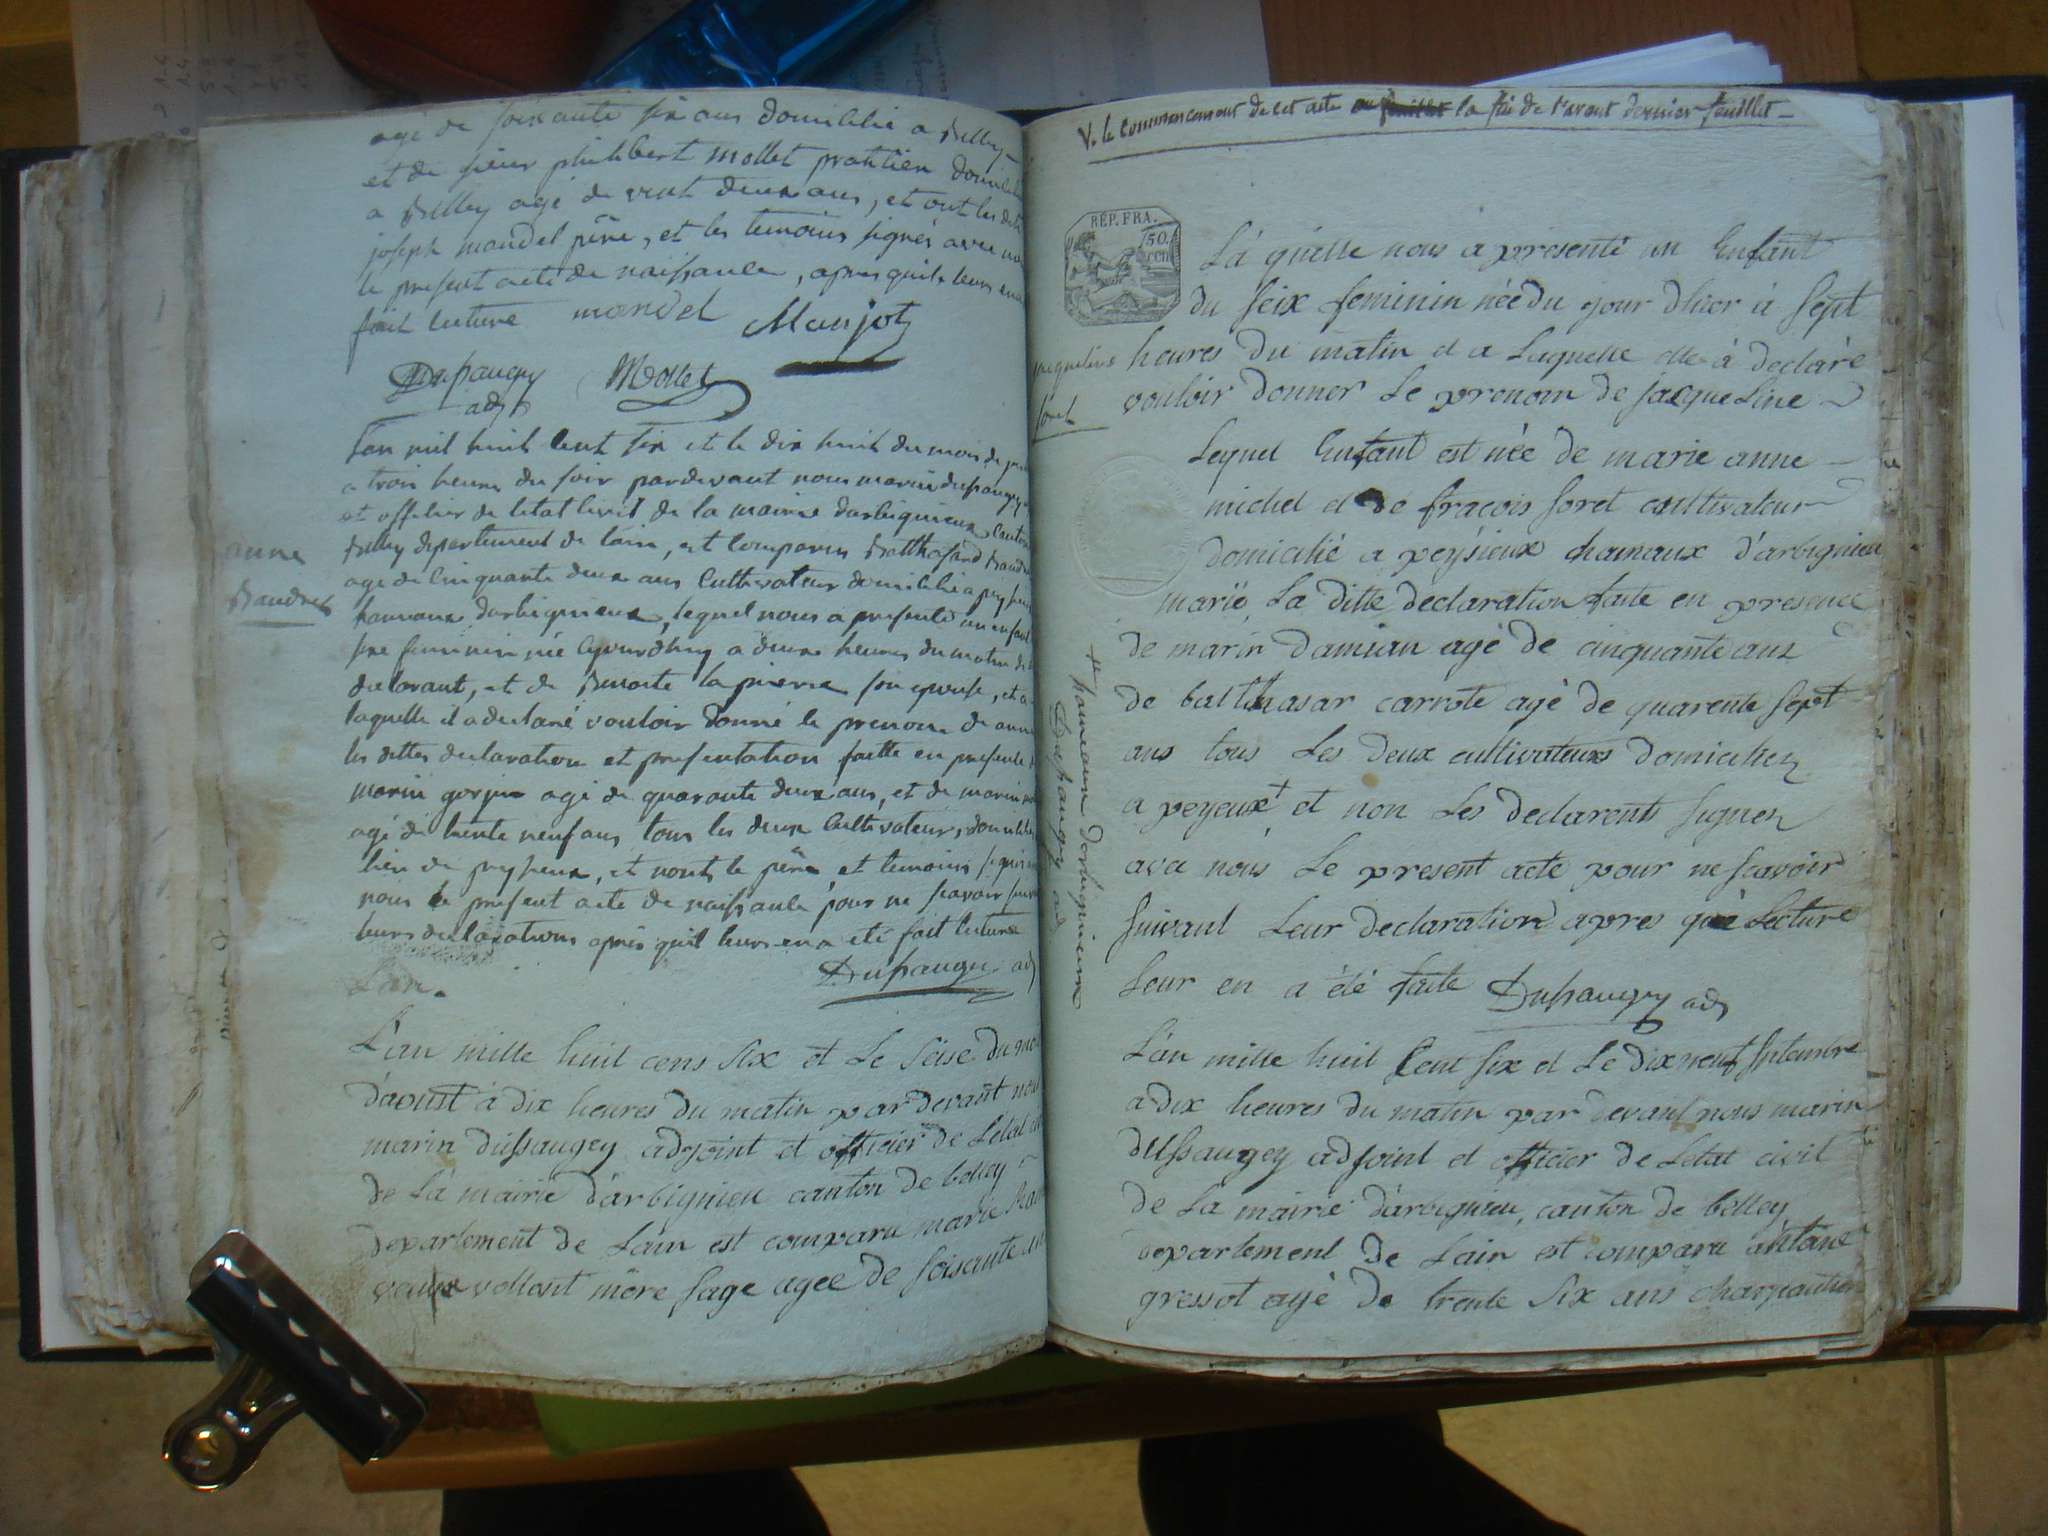 agé de soixante six ans domicilié a Belley
et de sieur philibert mollet pratitien domicilié
a Belley agé de vint deux ans, et ont les dits
joseph mandel père, et les temoins signés avec nous
le present acte de naissance, apres quil leurs en a
fait lecture mandel Manjot
Dussaugey Mollet
adj
Lan mil huit cent six et le dix huit du mois de
a trois heures du soir pardevant nous marin dussaugey
et officier de letat civil de la mairie darbignieux canton
Belley departement de lain, est comparu Balthasard Baudet
agé de cinquante deux ans Cultivateur domicilié a peyzieu
hameaux darbignieux, lequel nous a presenté un enfant
sexe feminin née ajourdhuy a deux heures du matin de
declarant, et de Benoite la pierre son epouse, et a
laquelle il a declaré vouloir donné le prenom de anne
les dittes declaration et presentation faitte en presence
marin gorjux agé de quarante deux ans, et de marin
agé de trente neuf ans tous les deux Cultivateurs, domicilié
lieu de peyzieux, et nonts le père et temoins signé
nous le present acte de naissance pour ne scavoir suivant
leurs declarations après quil leurs en a été fait lecture
Dussaugey adj
Lan.
anne
Baudet
L'an mille huit cens six et Le seise du mois
d'aoust à dix heures du matin par devant nous
marin dussaugey adjoint et officier de Letat civil
de La mairie d'arbignieu canton de belley
departement de Lain est comparu marie
veuve vollont mère sage agee de soisante
V. le commencement de cet acte au feuillet la fin de l'avant dernier feuillet
REP. FRA.
50.
CEN
La quelle nous a presenté un Enfant
du seix feminin née du jour d'hier à sept
heures du matin et a Laquelle elle à declaré
vouloir donner Le prenom de jacqueLine
jacqueline
foret
Lequel Enfant est née de marie anne
michel et de fracois foret cultivateur
domicilié a peysieux hamaux d'arbignieu
marié La ditte declaration faite en presence
de marin damian agé de cinquante ans
de balthasar carrote agé de quarente sept
ans tous Les deux cultivateurs domicilien
a peyeux + et non Les declarents signer
avec nous Le present acte pour ne scavoir
suivant Leur declaration apres que Lecture
Leur en a été faite Dussaugey adj
+ hameaux darbignieux
Dussaugey adj
L'an mille huit Cent six et Le dix neuf septembre
a dix heures du matin par devant nous marin
dussaugey adjoint et officier de Letat civil
de La mairie d'arbignieu, canton de belley
departement de Lain est comparu antoine
gressot agé de trente six ans charpantier